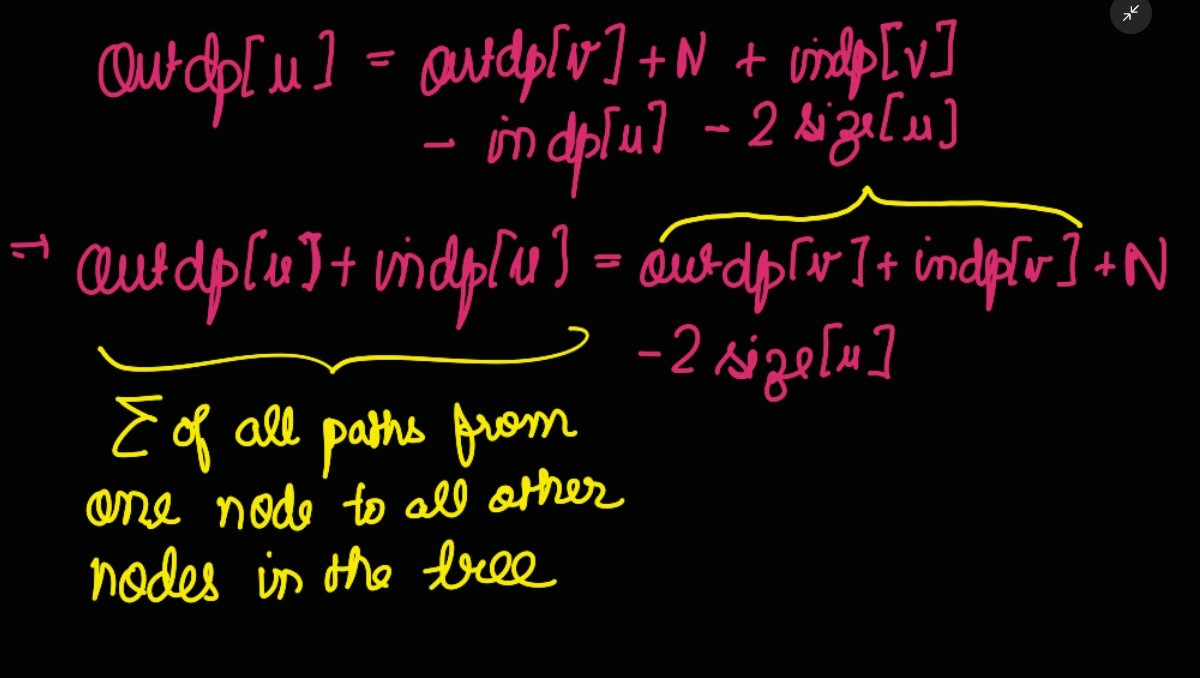 outdp[u] = outdp[v] + N + indp[v]
- indp[u] - 2 size[u]
⇒ outdp[u] + indp[u] = outdp[v] + indp[v] + N
- 2 size[u]
Σ of all paths from
one node to all other
nodes in the tree